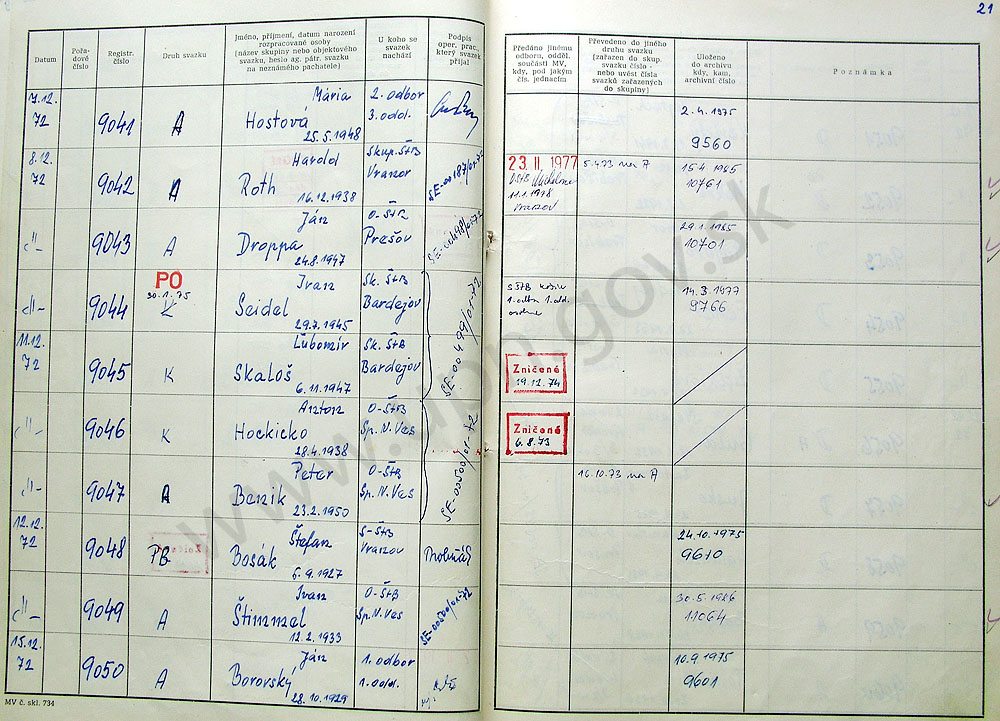 21
Datum
Pořa-
dové
číslo
Registr.
číslo
Druh svazku
Jméno, příjmení, datum narození
rozpracované osoby
(název skupiny nebo objektového
svazku, heslo ag. pátr. svazku
na neznámého pachatele)
U koho se
svazek
nachází
Podpis
oper. prac.,
který svazek
přijal
Předáno jinému
odboru, odděl.
součásti MV,
kdy, pod jakým
čís. jednacím
Převedeno do jiného
druhu svazku
(zařazen do skup.
svazku číslo -
nebo uvést čísla
svazků zařazených
do skupiny)
Uloženo
do archivu
kdy, kam,
archivní číslo
Poznámka
7.12.
72
9041
A
Mária
Hostová
25.5.1948
2. odbor
3. odd.
2.4.1975
9560
8.12.
72
9042
A
Harold
Roth
16.12.1938
Skup. ŠtB
Vranov
SE-00187/01-72
23. II. 1977
11.1.1978
Vranov
5.433 na A
15.4.1985
10761
-"-
9043
A
Ján
Droppa
24.8.1947
O-ŠtB
Prešov
SE-00498/01-72
29.1.1985
10701
-"-
9044
PO
30.1.75
K
Ivan
Seidel
29.7.1945
Sk. ŠtB
Bardejov
SE-00499/01-72
SŠtB Košice
1. odbor 1. odd.
14.3.1977
9766
11.12.
72
9045
K
Ľubomír
Skaloš
6.11.1947
Sk. ŠtB
Bardejov
Zničené
19.12.74
-"-
9046
K
Anton
Hockicko
28.4.1938
O-ŠtB
Sp. N. Ves
SE-00500/01-72
Zničené
6.8.73
-"-
9047
A
Peter
Benik
23.2.1950
O-ŠtB
Sp. N. Ves
16.10.73 na A
12.12.
72
9048
PB
Štefan
Bosák
6.9.1927
S-ŠtB
Vranov
24.10.1975
9610
-"-
9049
A
Ivan
Štimmel
12.2.1933
O-ŠtB
Sp. N. Ves
SE-00500/01-72
30.5.1986
11064
15.12.
72
9050
A
Ján
Borovský
28.10.1929
1. odbor
1. odd.
10.9.1975
9601
MV č. skl. 734
www.upn.gov.sk